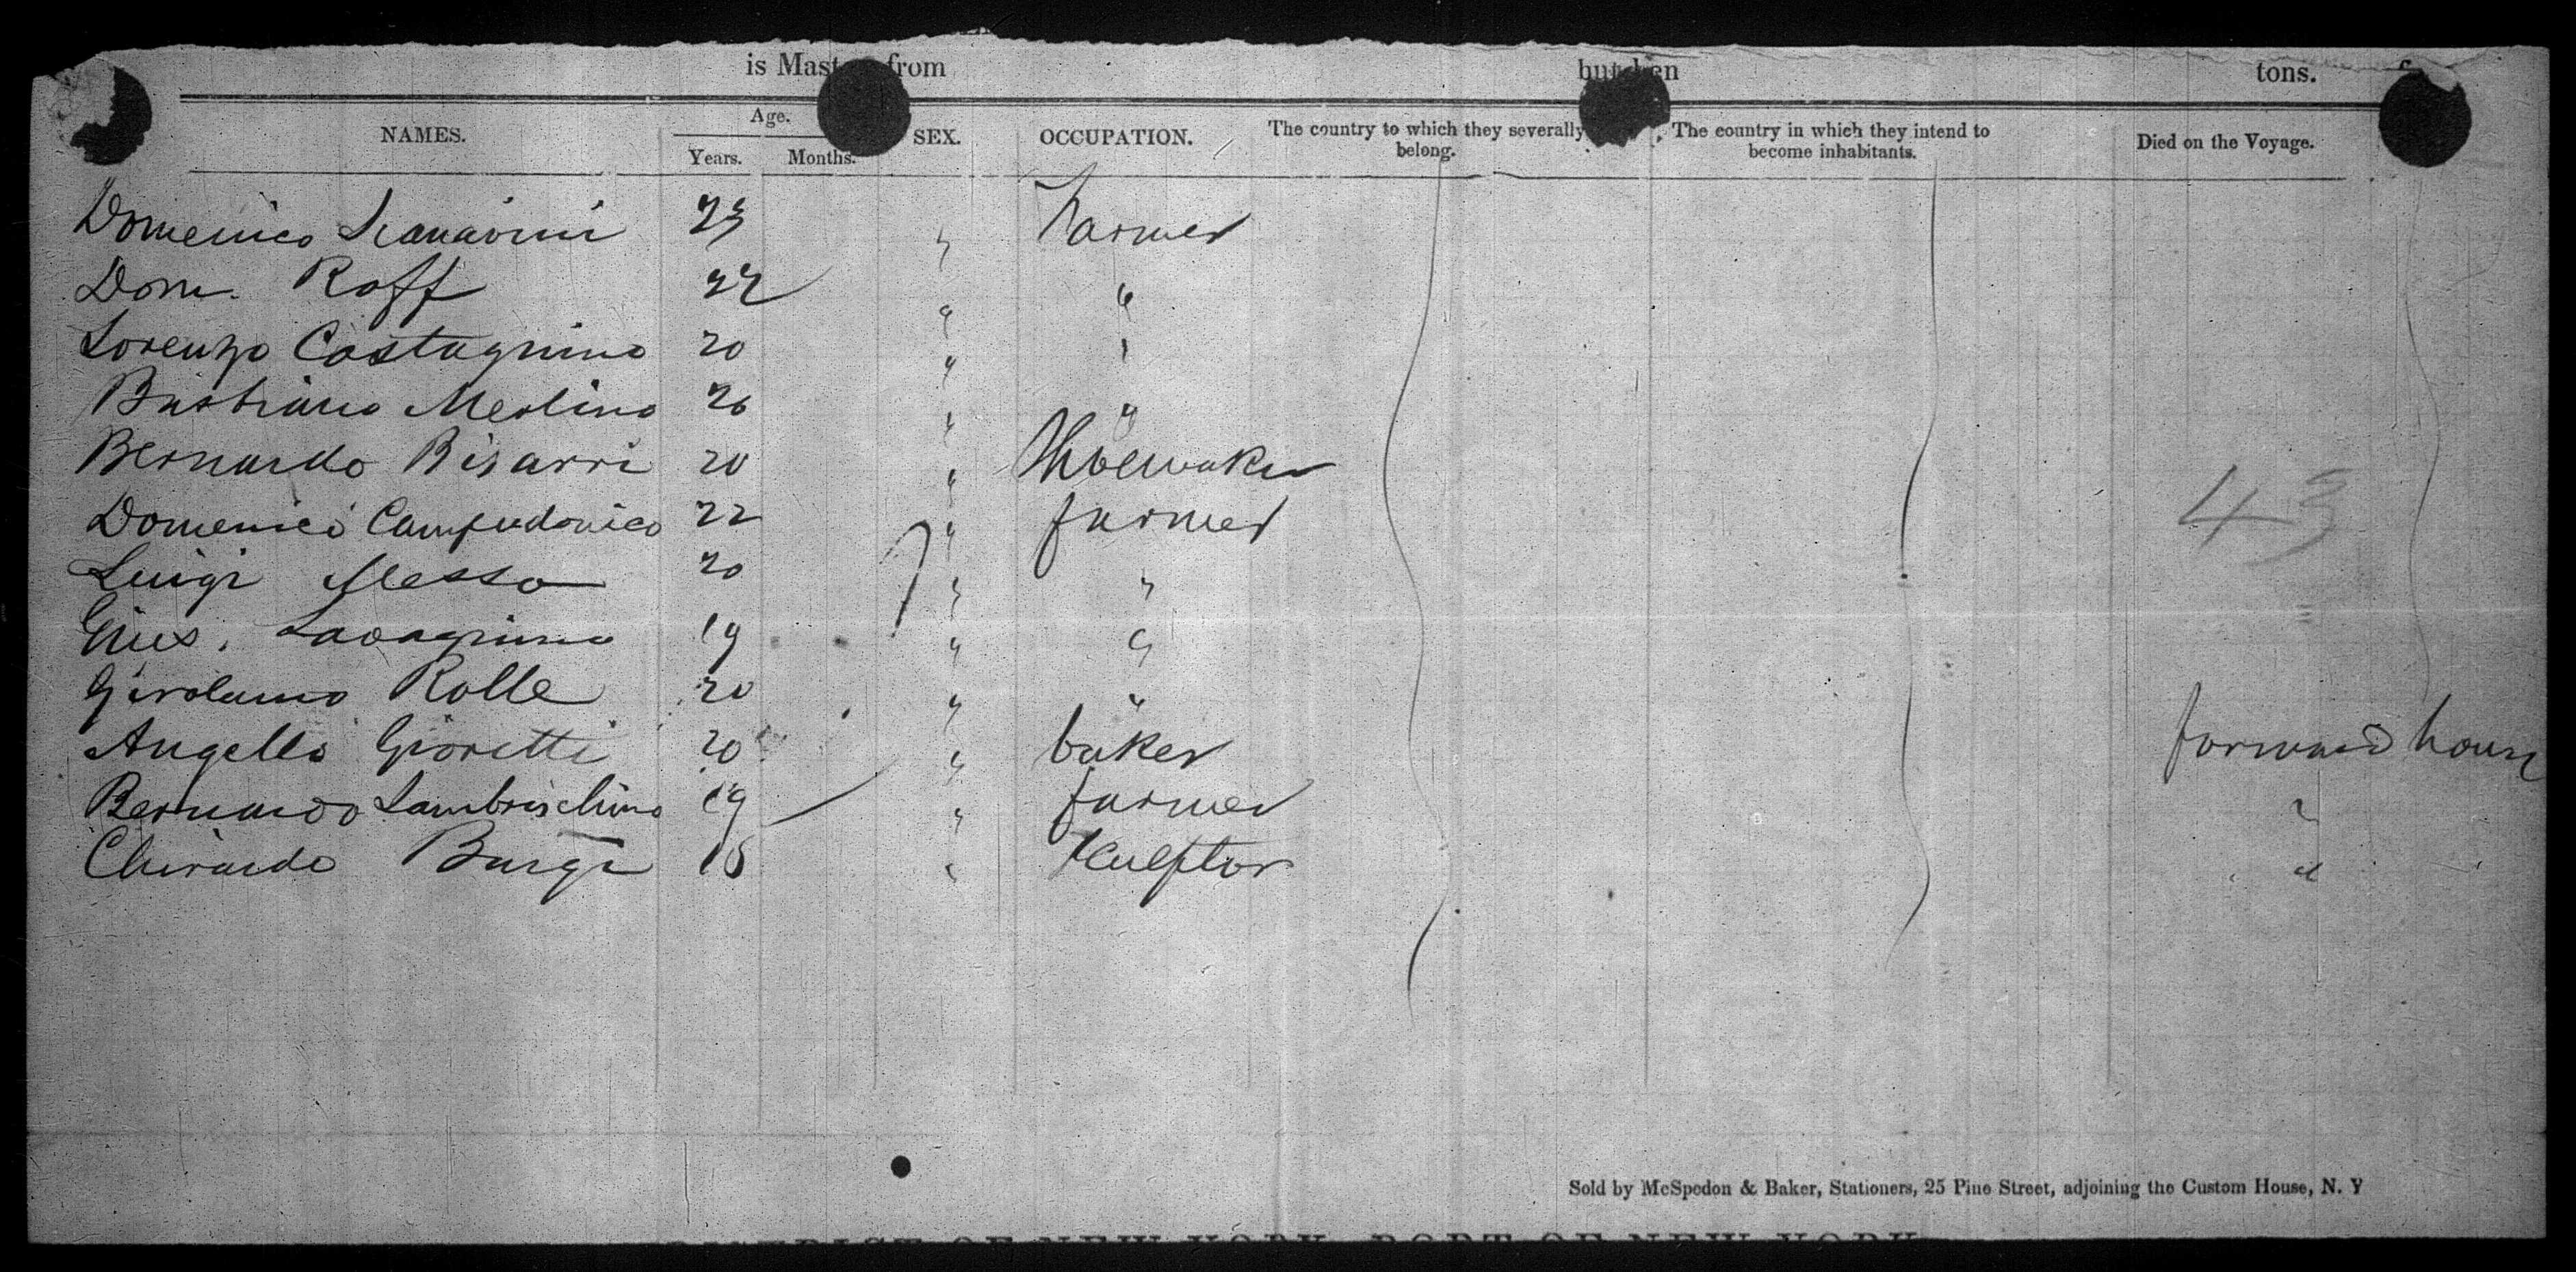 is Master from burthen tons.
NAMES. Age. SEX. OCCUPATION. The country to which they severally belong. The country in which they intend to become inhabitants. Died on the Voyage.
Years. Months.
Domenico 23 " Farmer
Dom. Roff 22 " "
Lorenzo Costagnino 20 " "
Bastiano Merlino 26 " "
Bernardo Bisarri 20 " Shoemaker
Domenico Campodonico 22 " farmer
43
Luigi Messo 20 " "
Gius. Lavagnino 19 " "
Girolamo Rolle 20 " "
Angello Gioretti 20 " baker forward house
Bernardo Lambrischino 19 " farmer "
Chirardo Burgi 18 " Sculptor "
Sold by McSpedon & Baker, Stationers, 25 Pine Street, adjoining the Custom House, N. Y
DISTRICT OF NEW YORK, PORT OF NEW YORK